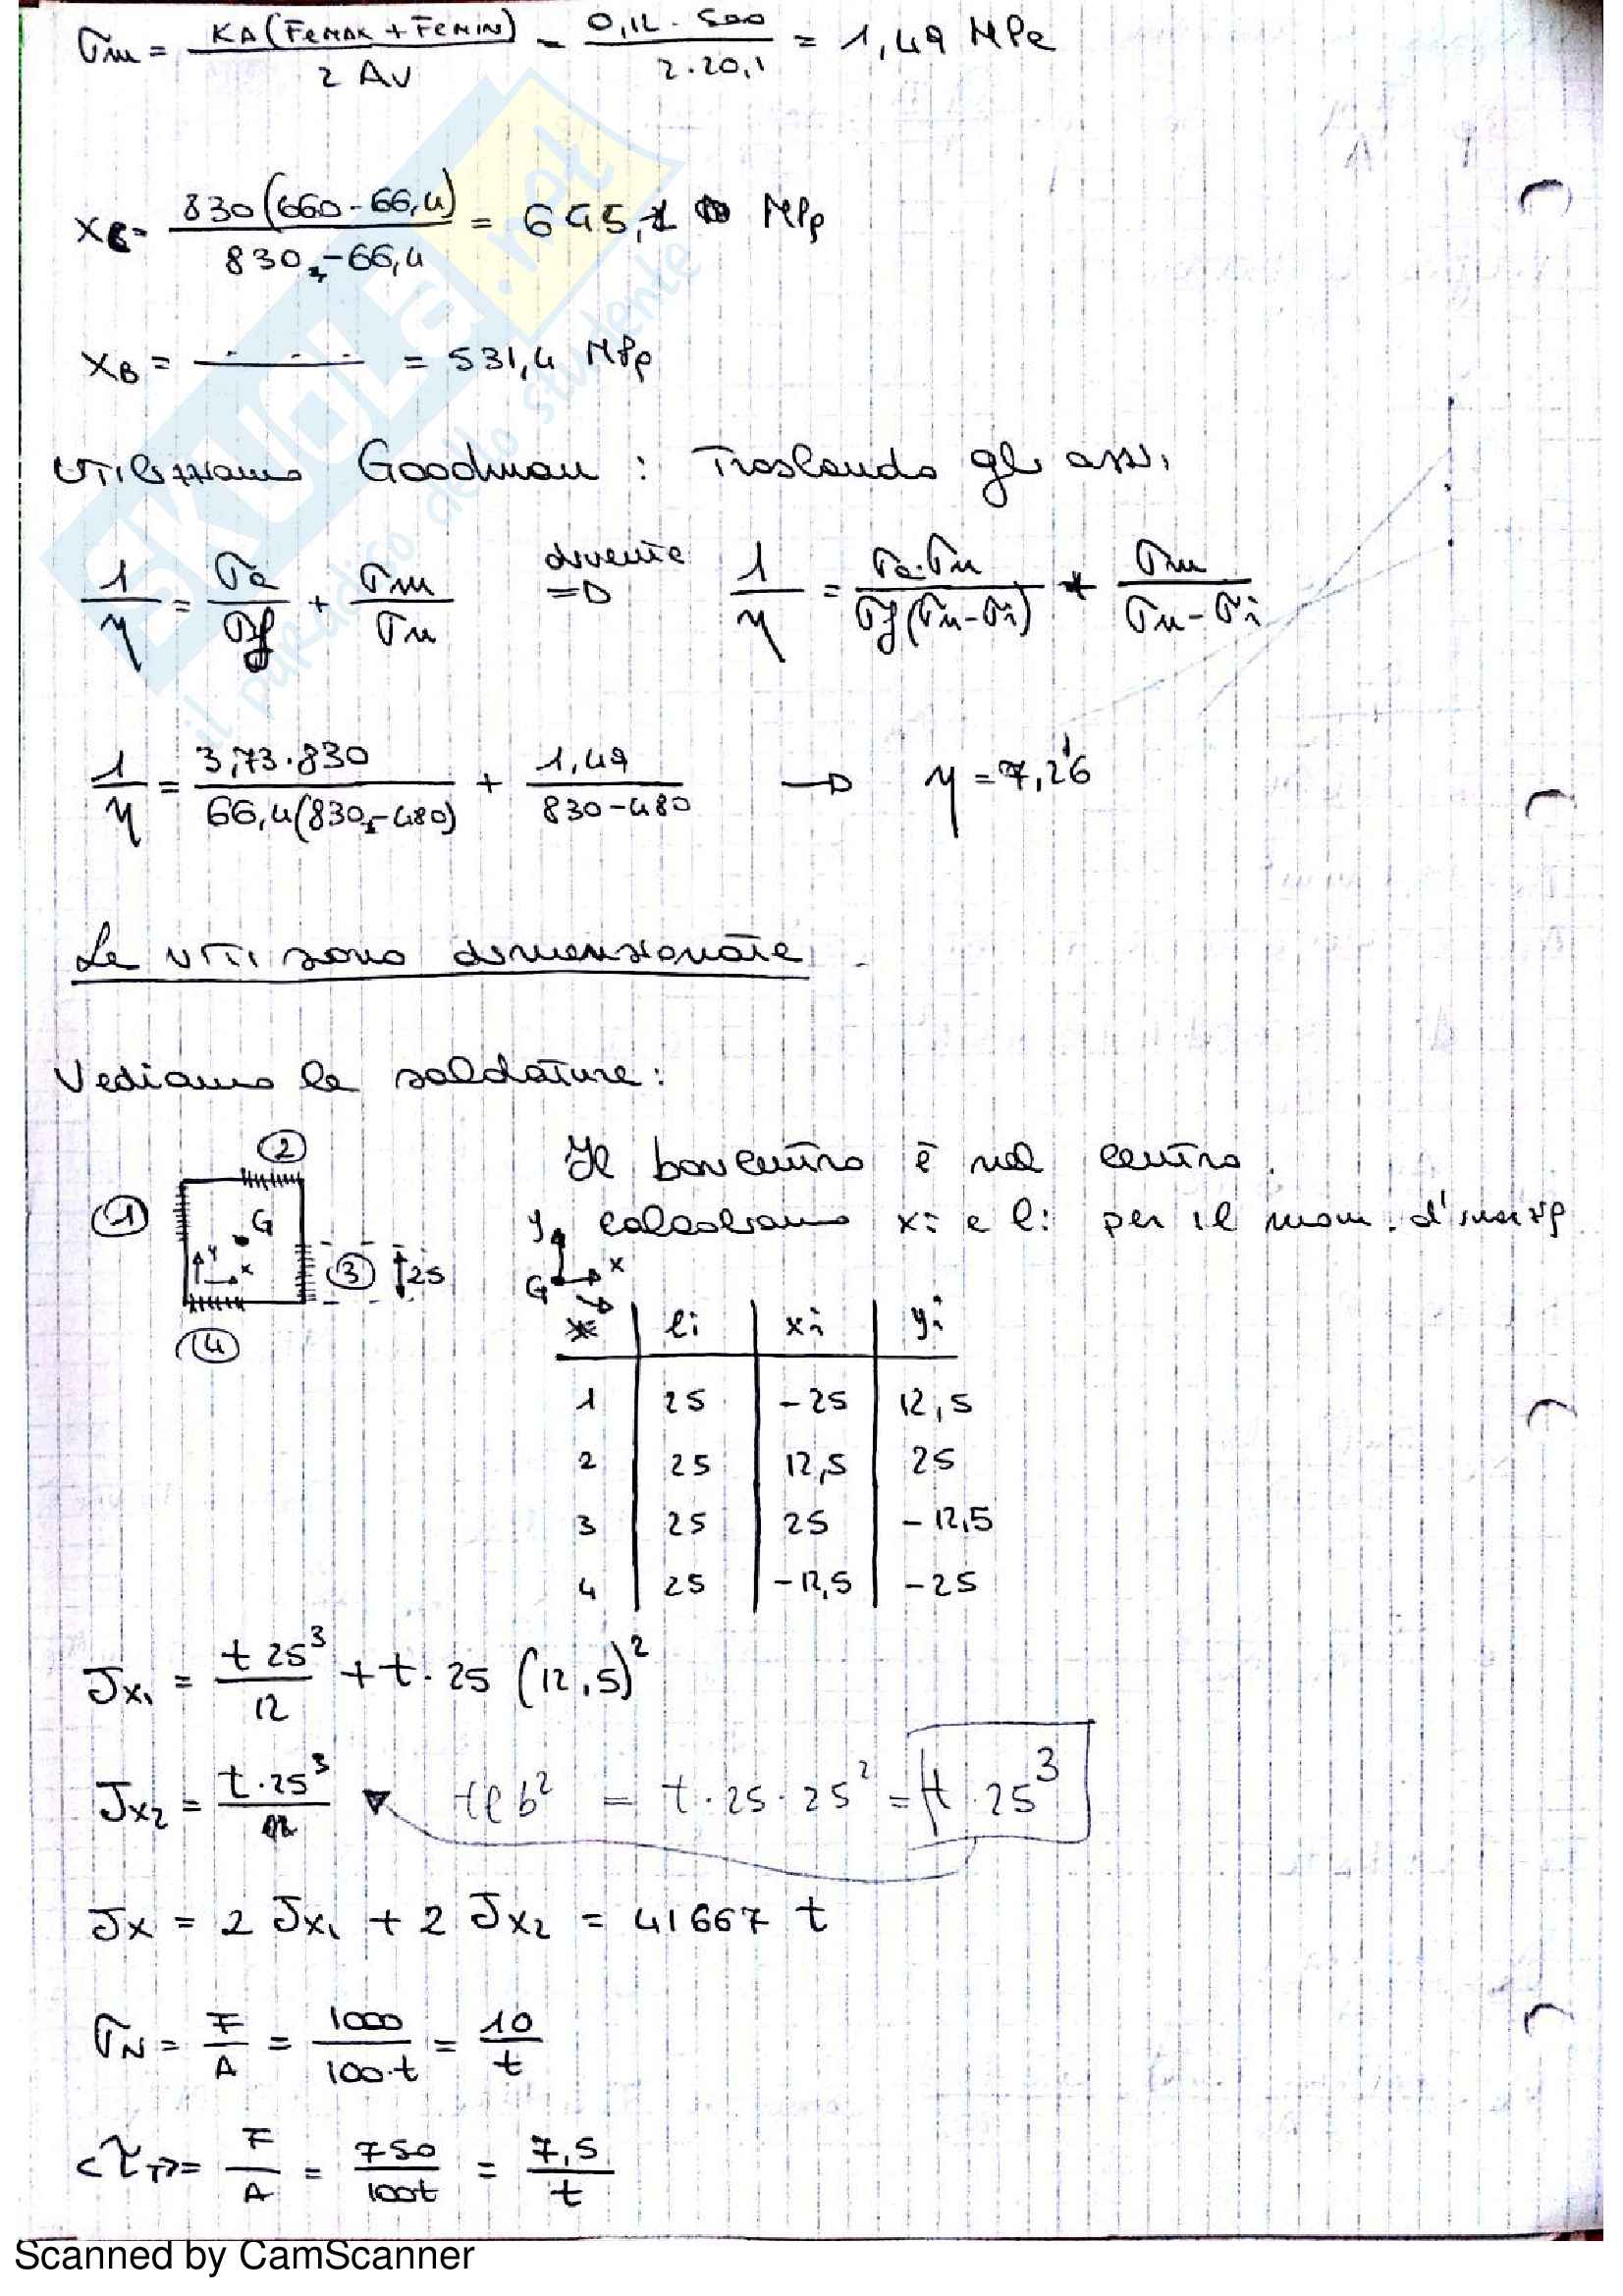 σm = KA(FeMAX + FeMIN) / 2 Av = 0,12 · 500 / 2·20,1 = 1,49 MPa
xB = 830(660-66,4) / 830-66,4 = 645,2 MPa
xB = - - - = 531,4 MPa
Utilizziamo Goodman : Traslando gli assi
1/η = σa/σf + σm/σu diventa => 1/η = σa·σu / σf(σu-σi) + σm / σu-σi
1/η = 3,73·830 / 66,4(830-480) + 1,49 / 830-480 → η = 7,26
Le viti sono dimensionate
Vediamo le saldature:
2
1
G
Y
x
3
25
4
Il baricentro è nel centro.
calcoliamo xi e li per il mom. d'inerzia
y
x
G
li xi yi
1 25 -25 12,5
2 25 12,5 25
3 25 25 -12,5
4 25 -12,5 -25
Jx1 = t 25³ / 12 + t · 25 (12,5)²
Jx2 = t·25³ / 12 tlb² = t·25·25² = t·25³
Jx = 2 Jx1 + 2 Jx2 = 41667 t
σN = F/A = 1000 / 100·t = 10/t
<τT> = F/A = 750 / 100t = 7,5/t
SKUOLA.net
il paradiso dello studente
Scanned by CamScanner